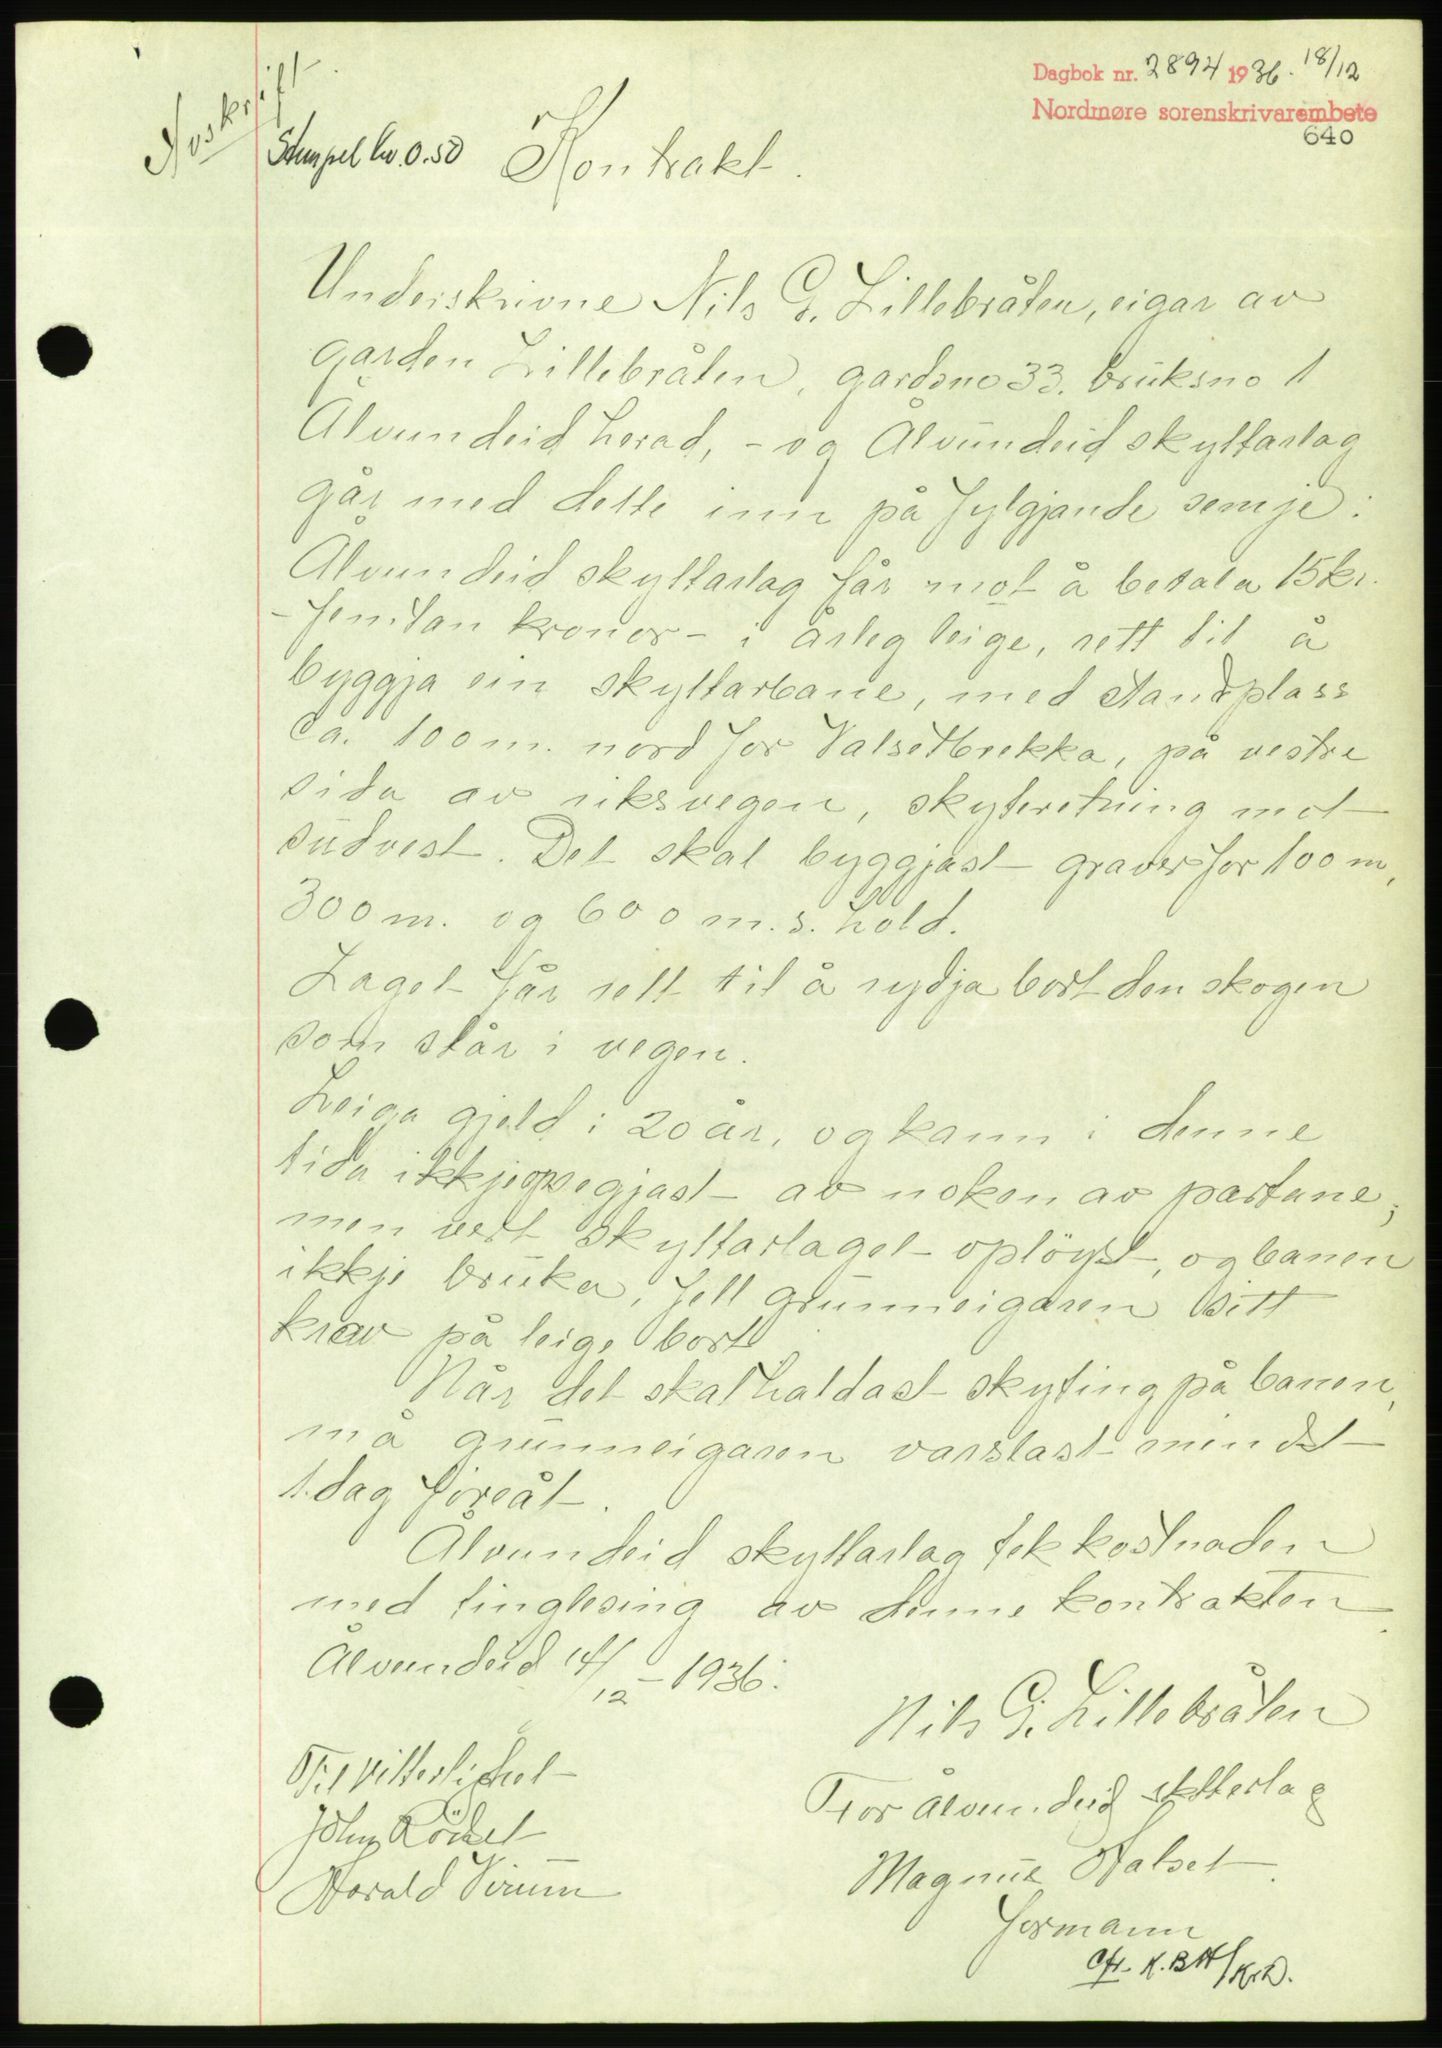 Dagbok nr. 2894 1936. 18/12
Nordmøre sorenskrivarembete
640
Avskrift
Stempel kr. 0.50
Kontrakt.
Underskrivne Nils G. Lillebråten, eigar av
garden Lillebråten, gardsno 33. bruksno 1
Ålvundeid herad, - og Ålvundeid skyttarlag
går med dette inn på fylgjande semje:
Ålvundeid skyttarlag får mot å betala 15 kr.
- femtan kronor - i årleg leige, rett til å
byggja ein skyttarbane, med standplass
ca. 100 m. nord for Valsetbrekka, på vestre
sida av riksvegen, skyteretning mot
sudvest. Det skal byggjast graver for 100 m,
300 m. og 600 m.s. hold.
Laget får rett til å rydja bort den skogen
som står i vegen.
Leiga gjeld i 20 år, og kann i denne
tida ikkje opsegjast av noken av partane;
men vert skyttarlaget oplöyst, og banen
ikkje bruka, fell grunneigaren sitt
krav på leige bort.
Når det skal haldast skyting på banen,
må grunneigaren varslast mindst
1. dag föreåt.
Ålvundeid skyttarlag tek kostnaden
med tinglesing av denne kontrakten.
Ålvundeid 14/12 - 1936.
Nils G. Lillebråten
Til vitterlighet
For Ålvundeid skytterlag
John Rödset
Magnus Halset
Harald Virum
formann
Cfr. K.B.H/Kr.D.